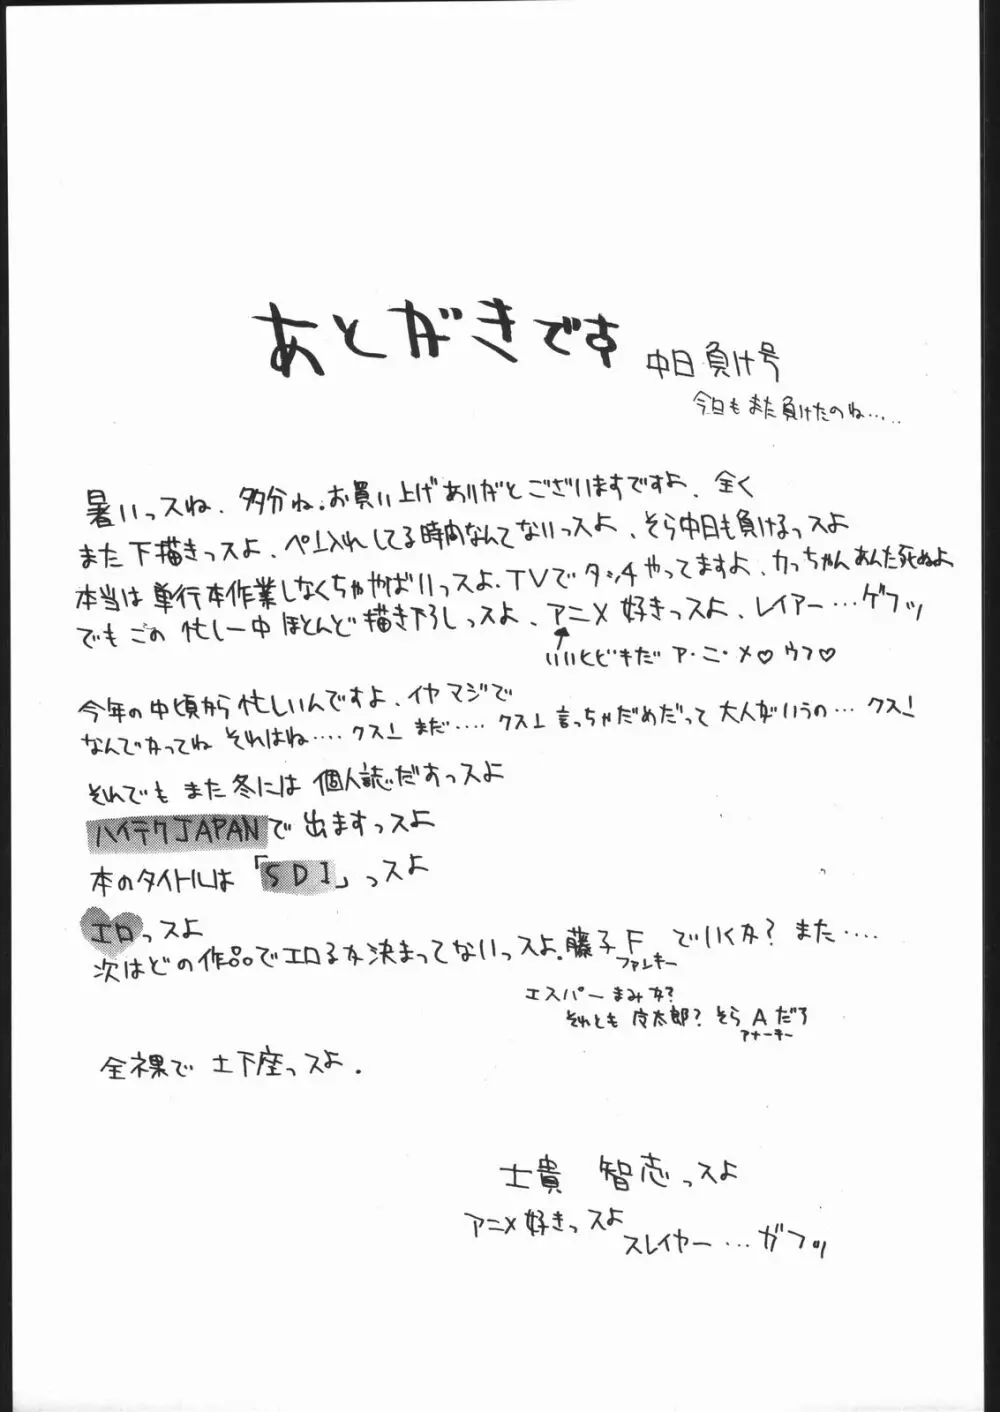 あとがきです
中日負け号
今日もまた負けたのね……
暑いっスね、多分ね。お買い上げありがとございますですよ、全く
また下描きっスよ、ペン入れしてる時間なんてないっスよ、そら中日も負けるっスよ
本当は単行本作業しなくちゃやばいっスよ、TVでタッチやってますよ、カっちゃんあんた死ぬよ
でもこの忙し一中ほとんど描き下ろしっスよ、アニメ好きっスよ、レイアー…ゲフッ
いいヒビキだ ア・ニ・メ♡ウフ♡
今年の中頃から忙しいんですよ、イヤマジで
なんでかってね それはね…. クスン まだ…. クスン 言っちゃだめだって大人がいうの… クスン
それでもまた冬には個人誌だすっスよ
ハイテクJAPANで出ますっスよ
本のタイトルは「SDI」っスよ
エロっスよ
次はどの作品でエロるか決まってないっスよ。藤子Fでいくか?また….
ファンキー
エスパーまみか?
それとも 太郎?そらAだろ
アナーキー
全裸で土下座っスよ.
士貴 智志っスよ
アニメ好きっスよ
スレイヤー…ガフッ